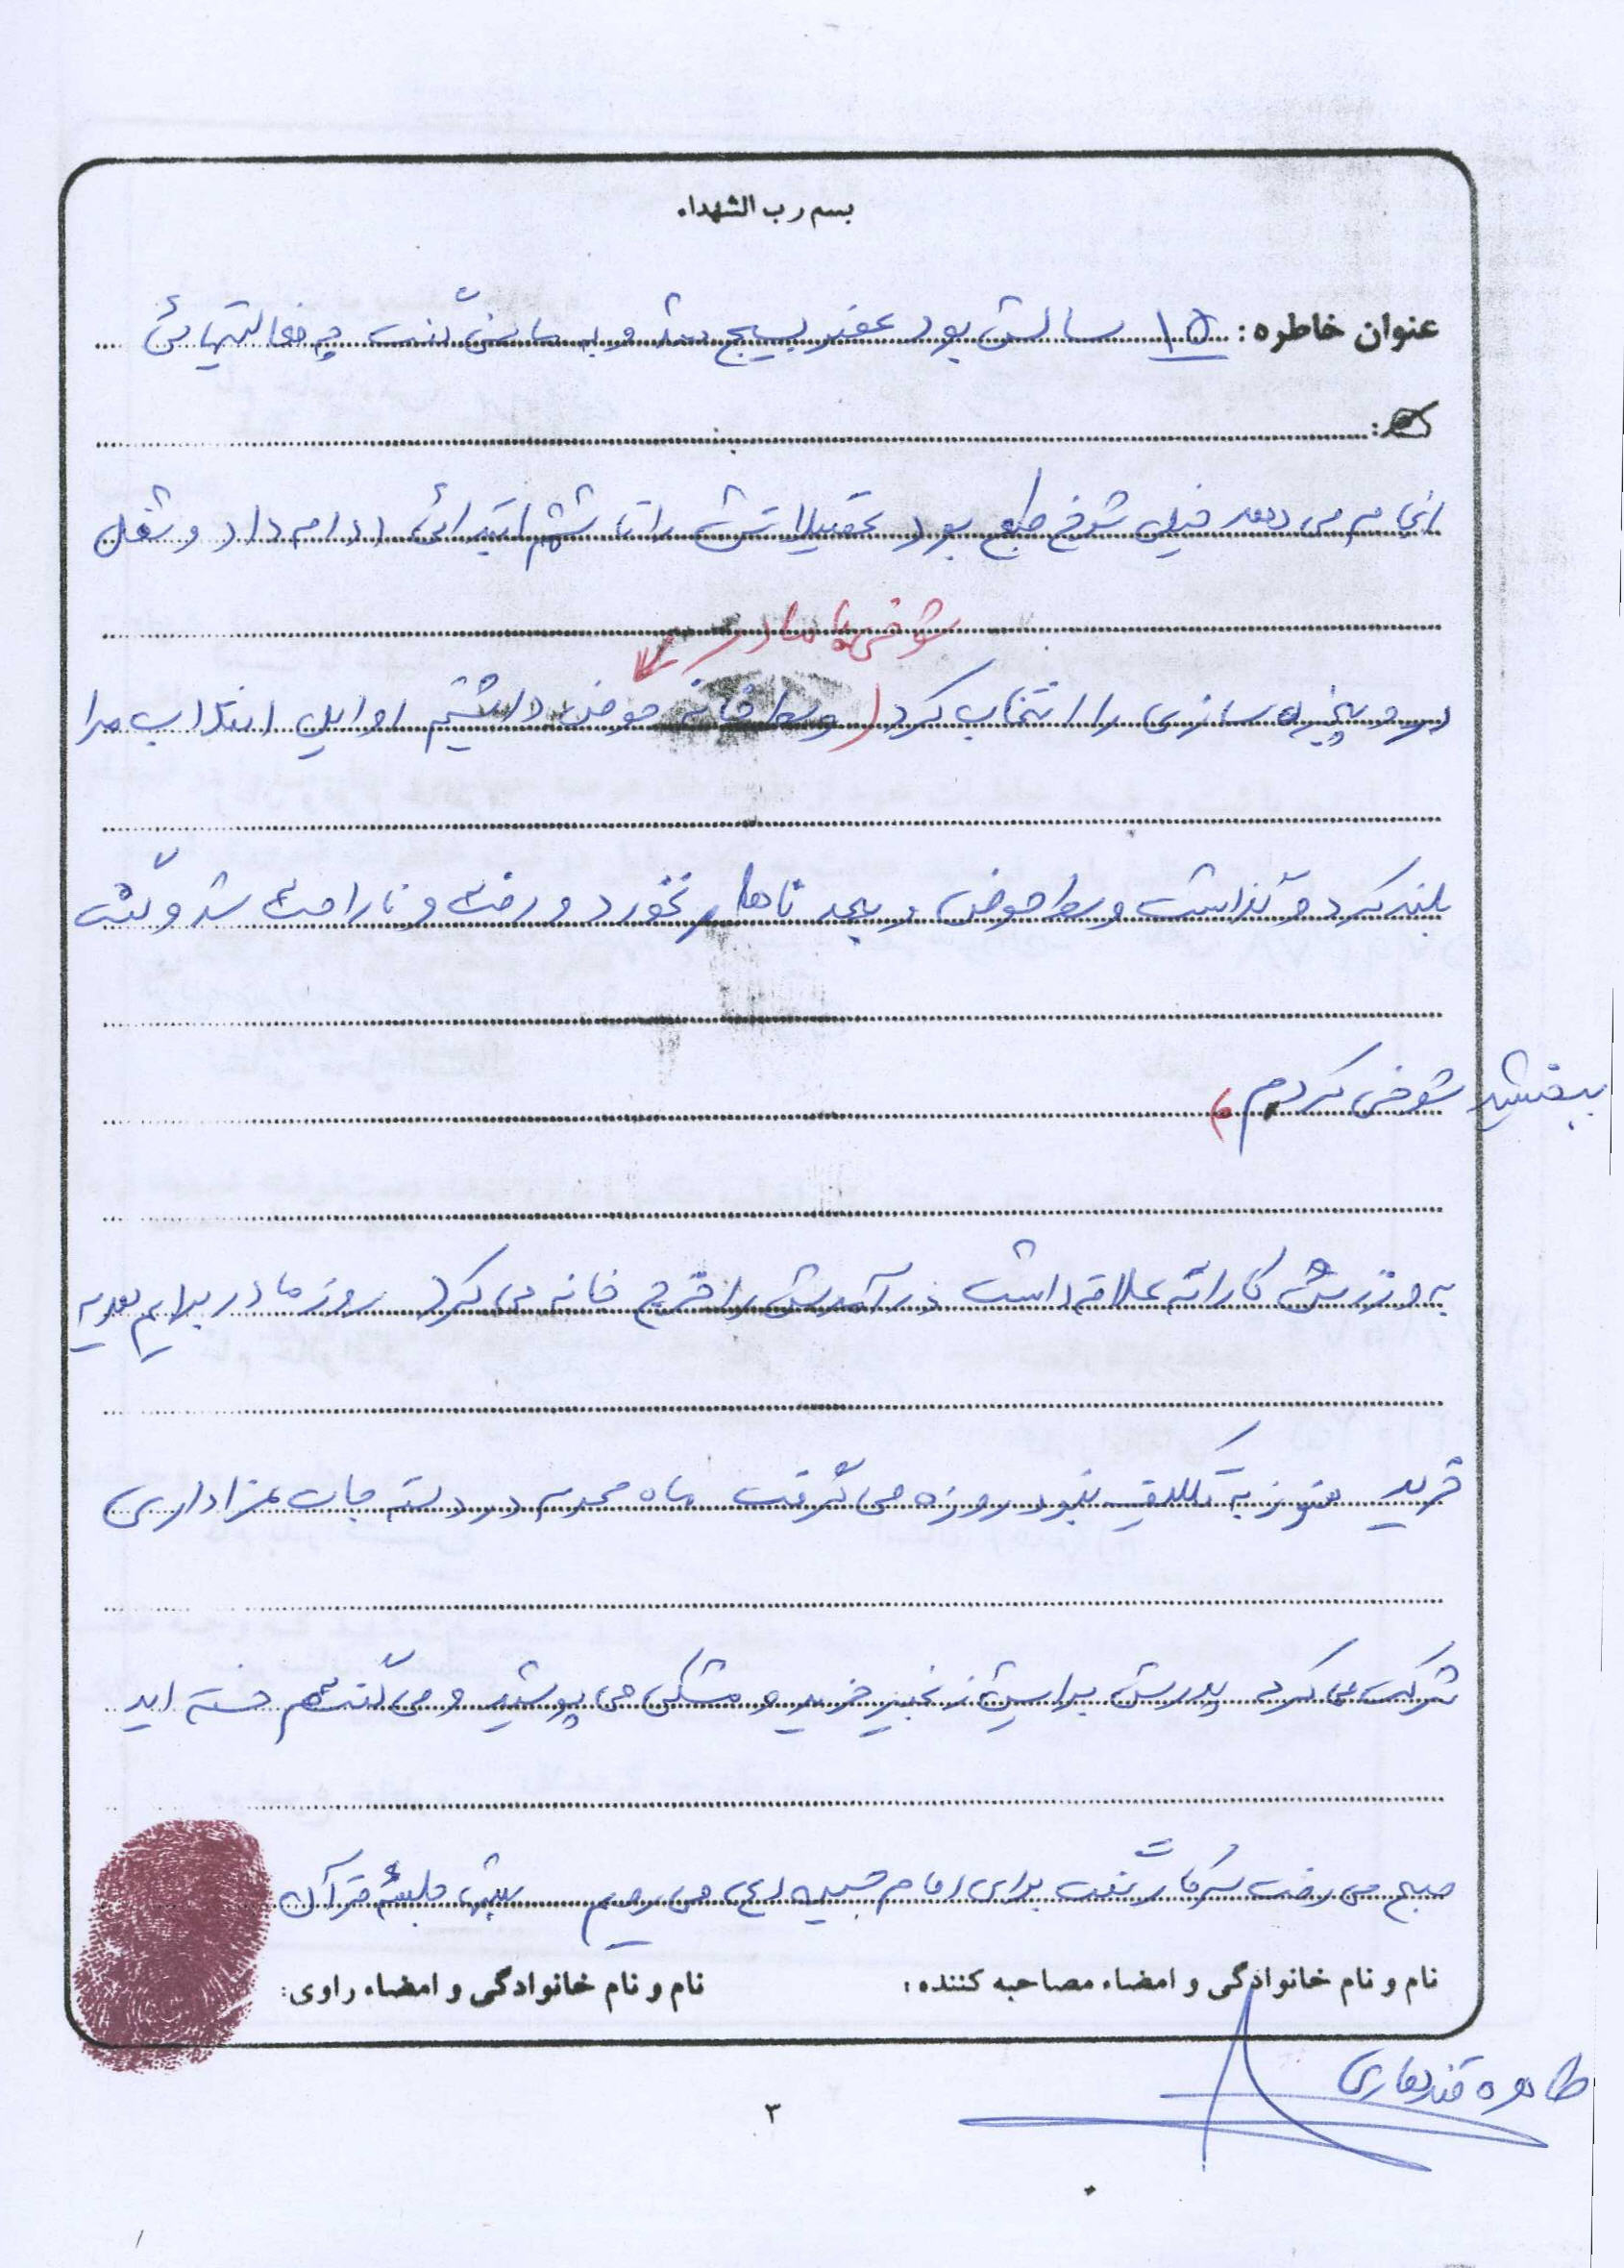 بسم رب الشهداء
عنوان خاطره: ۱۵ سالش بود عضو بسیج شد و به ما نمی گفت چه فعالیتهائی
انجام می دهد خیلی شوخ طبع بود تحصیلاتش را تا ششم ابتدائی ادامه داد و شغل
شوخی با مادر
در و پنجره سازی را انتخاب کرد (وسط خانه حوض داشتیم اوایل انقلاب مرا
بلند کرد و گذاشت وسط حوض و بعد ناهار نخورد و رفت و ناراحت شد و گفت
ببخشید شوخی کردم)
به ورزش کاراته علاقه داشت درآمدش را خرج خانه می کرد روز مادر برایم هدیه
خرید هنوز به تکلیف نبود روزه می گرفت ماه محرم در دسته جات عزاداری
شرکت می کرد پدرش برایش زنجیر خرید و مشکی می پوشید و می گفتم خسته اید
صبح می رفت سرکار گفت برای امام حسین (ع) می رویم بیشتر جلسهٔ قرآن
نام و نام خانوادگی و امضاء مصاحبه کننده:
نام و نام خانوادگی و امضاء راوی:
طاهره قندهاری
۳